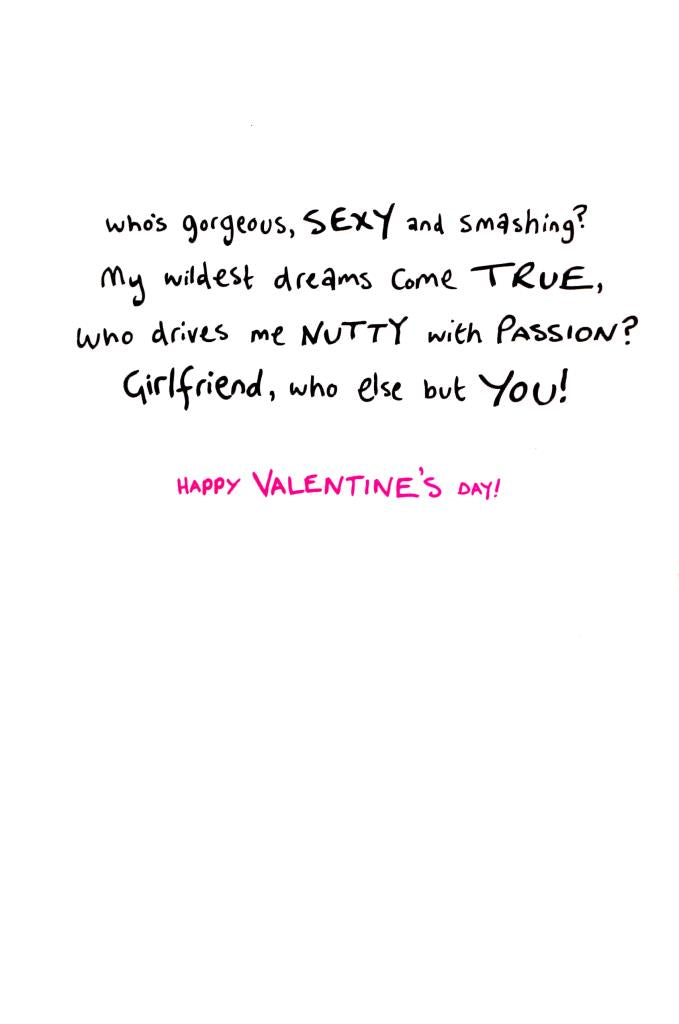 who's gorgeous, SEXY and smashing?
My wildest dreams come TRUE,
who drives me NUTTY with PASSION?
Girlfriend, who else but YOU!
HAPPY VALENTINE'S DAY!